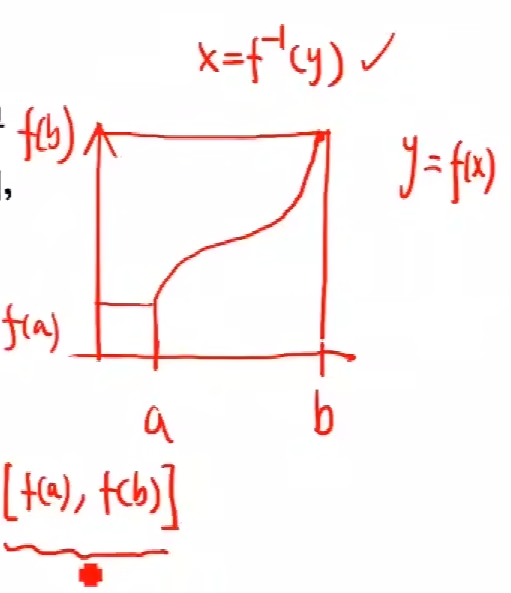 x=f⁻¹(y) ✓
f(b)
y=f(x)
,
f(a)
a
b
[f(a), f(b)]